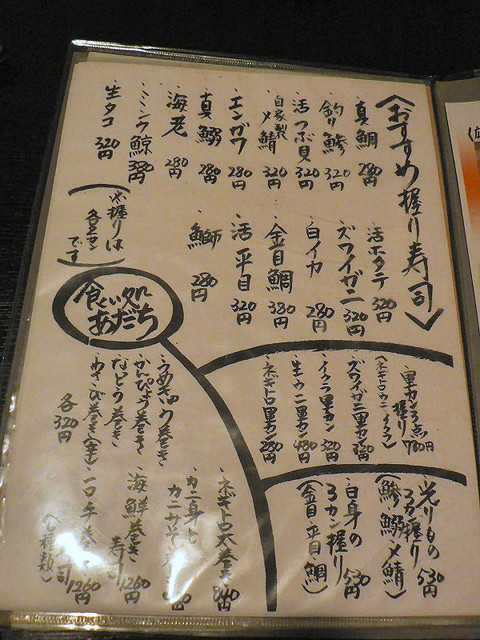 〈おすすめ握り寿司〉
・真鯛 280円
・釣り鯵 320円
・活つぶ貝 320円
・自家製〆鯖 320円
・エンガワ 280円
・真鰯 280円
・海老 280円
・ミンク鯨 380円
・生タコ 320円
・活ホタテ 320円
・ズワイガニ 320円
・白イカ 280円
・金目鯛 380円
・活平目 320円
・鰤 280円
(※握りは各2カンです)
食い処
あだち
・軍カン3点握り 780円
(ネギトロ・ウニ・イクラ)
・ズワイガニ軍カン 320円
・イクラ軍カン 320円
・生ウニ軍カン 480円
・ネギトロ軍カン 280円
・光りもの3カン握り 530円
(鯵 鰯 〆鯖)
・白身の3カン握り 530円
(金目 平目 鯛)
・うめきゅう巻き
・かんぴょう巻き
・なとう巻き
・わさび巻き(辛)
各320円
・ネギトロ太巻き 840円
・カニ身と
・海鮮巻き寿司 1260円
・一口手巻
司 1260円